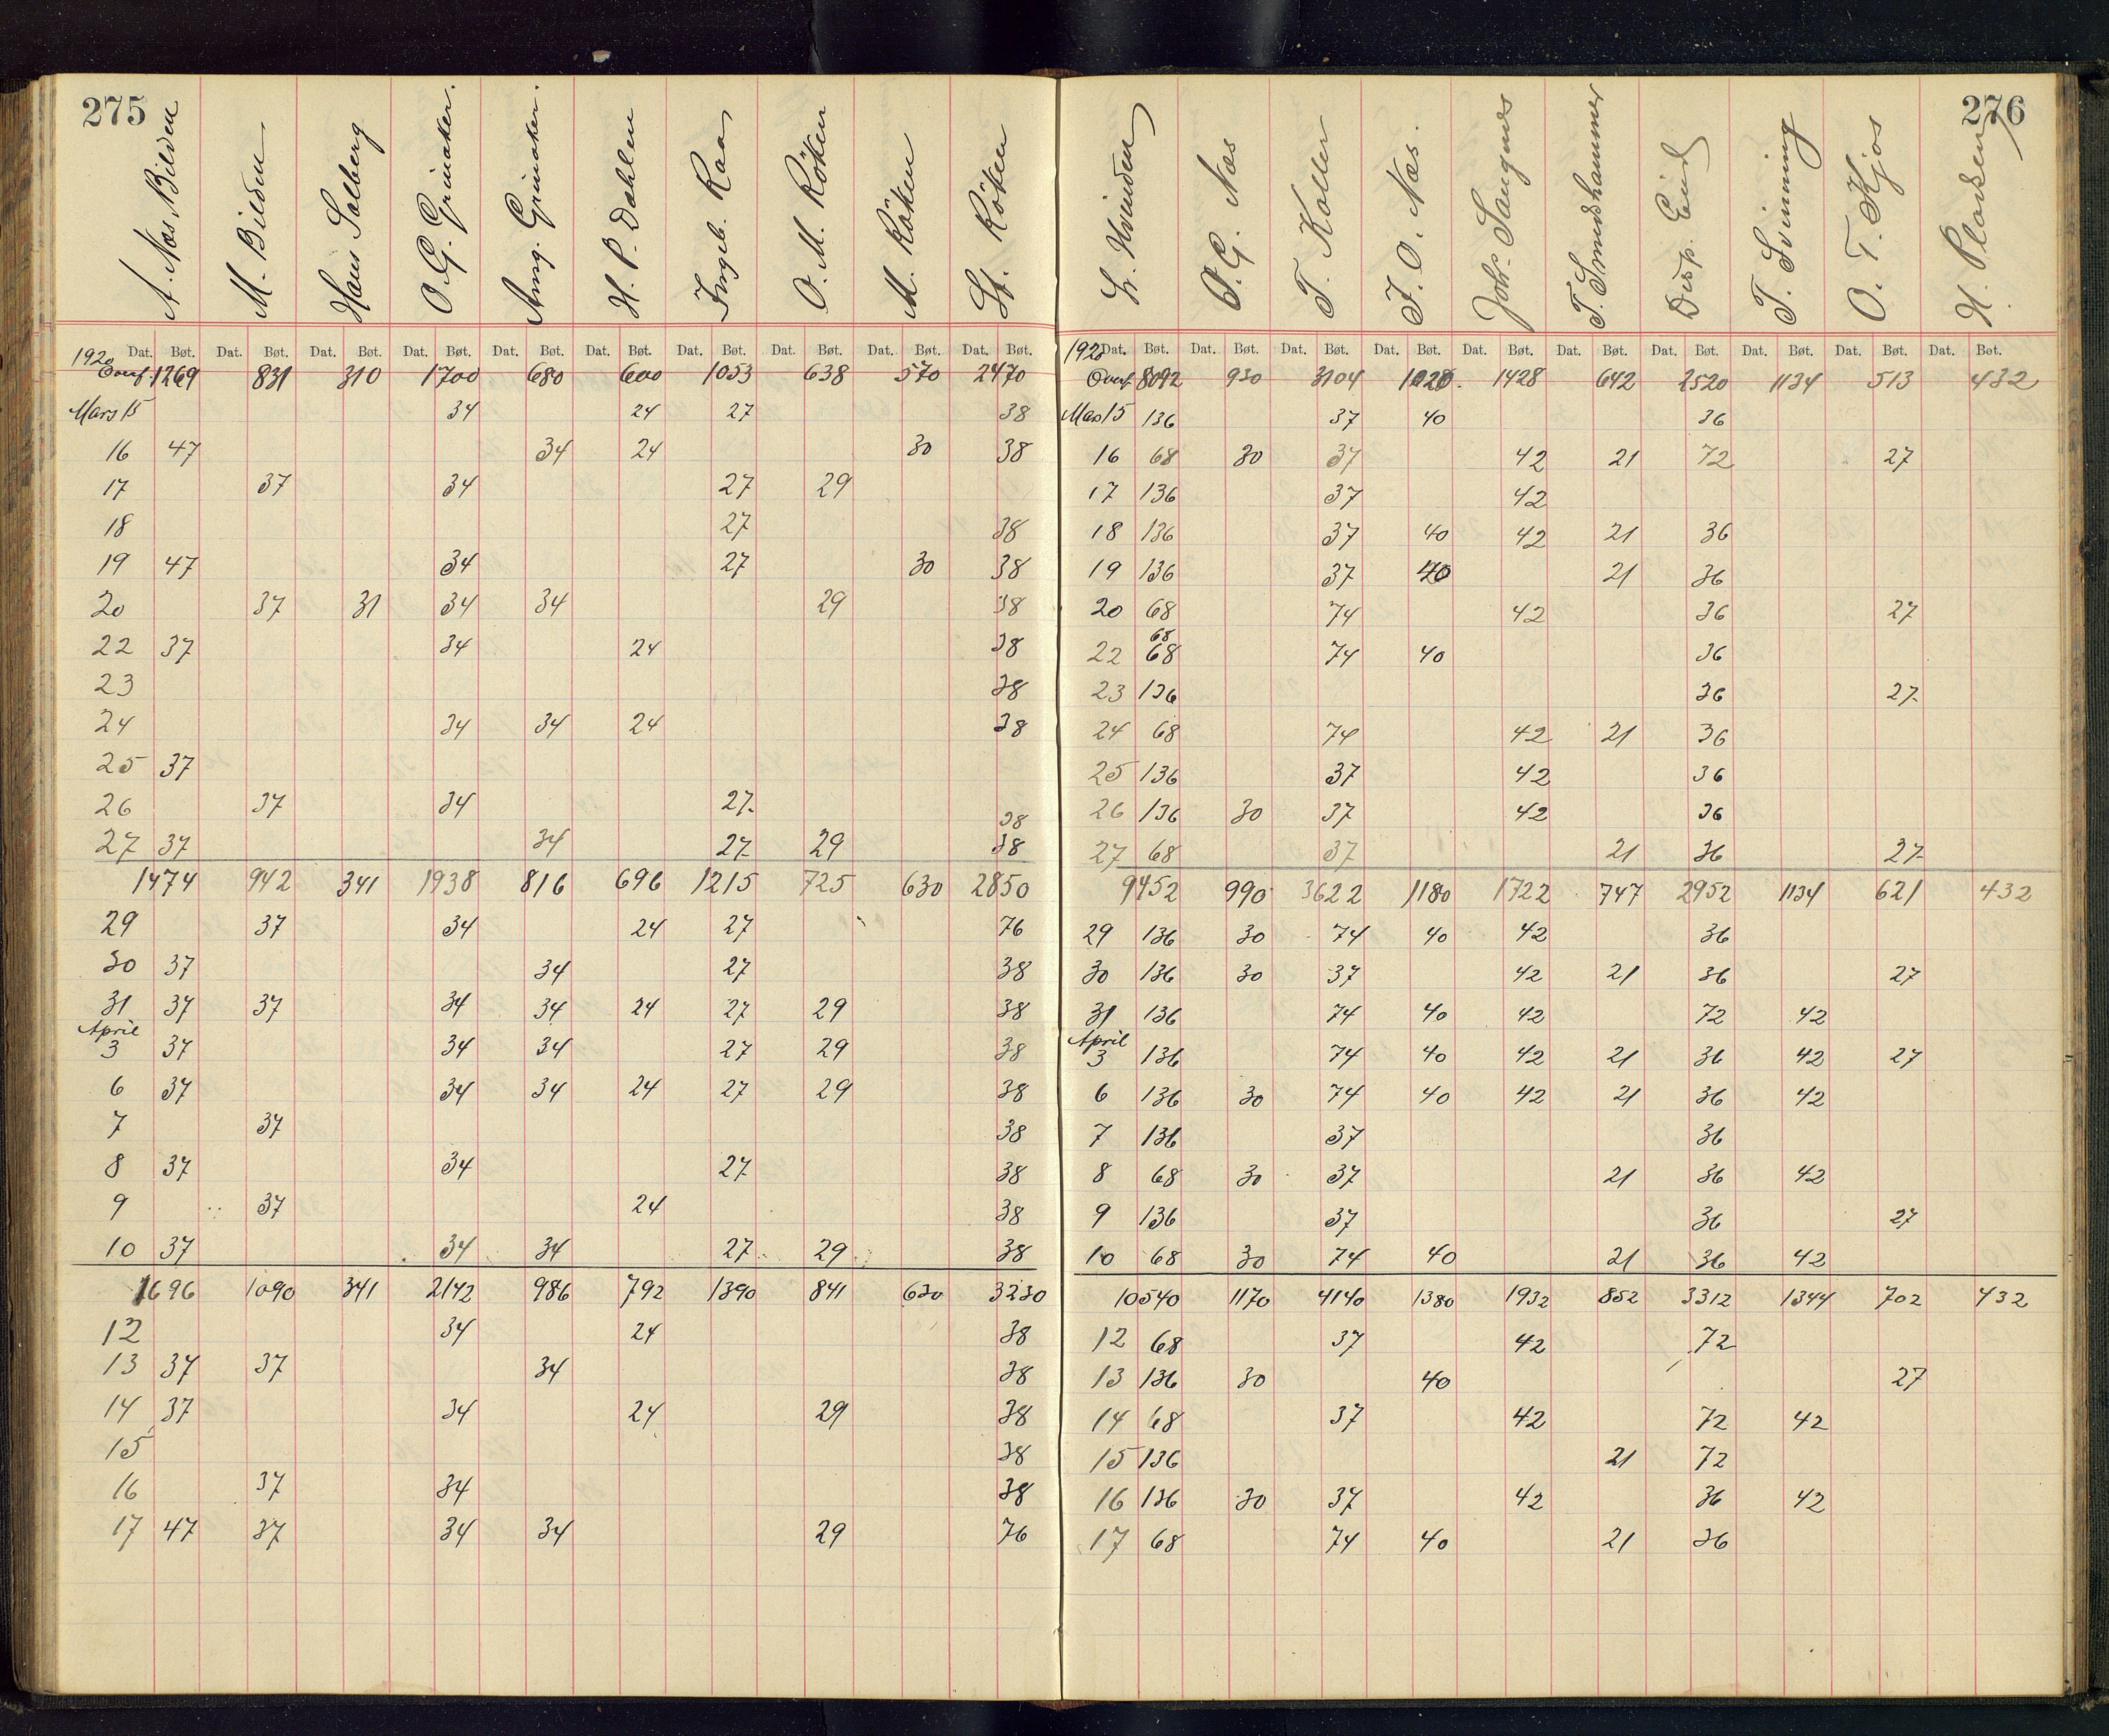 275
A. Næs Bilden M. Bilden Hans Solberg O. G. Grinaker. Ang. Grinaker. H. P. Dahlen Ingeb. Raa O. M. Röken M. Röken St. Röken
1920 Dat. Bøt. Dat. Bøt. Dat. Bøt. Dat. Bøt. Dat. Bøt. Dat. Bøt. Dat. Bøt. Dat. Bøt. Dat. Bøt. Dat. Bøt.
Overf. 1269 831 310 1700 680 600 1053 638 570 2470
Mars 15 34 24 27 38
16 47 34 24 30 38
17 37 34 27 29
18 27 38
19 47 34 27 30 38
20 37 31 34 34 29 38
22 37 34 24 38
23 38
24 34 34 24 38
25 37
26 37 34 27 38
27 37 34 27 29 38
1474 942 341 1938 816 696 1215 725 630 2850
29 37 34 24 27 76
30 37 34 27 38
31 37 37 34 34 24 27 29 38
April
3 37 34 34 27 29 38
6 37 34 34 24 27 29 38
7 37 38
8 37 34 27 38
9 37 24 38
10 37 34 34 27 29 38
1696 1090 341 2142 986 792 1390 841 630 3230
12 34 24 38
13 37 37 34 38
14 37 34 24 29 38
15 38
16 37 34 38
17 47 37 34 34 29 76
276
L. Hvinden P. G. Næs T. Koller J. O. Næs. Johs. Sangnes T. Smedshammer Disp. Eid T. Svinning O. T. Kjos H. Plassen
1920 Dat. Bøt. Dat. Bøt. Dat. Bøt. Dat. Bøt. Dat. Bøt. Dat. Bøt. Dat. Bøt. Dat. Bøt. Dat. Bøt. Dat. Bøt.
Overf. 8092 930 3104 1020. 1428 642 2520 1134 513 432
Mars 15 136 37 40 36
16 68 30 37 42 21 72 27
17 136 37 42
18 136 37 40 42 21 36
19 136 37 40 21 36
20 68 74 42 36 27
68
22 68 74 40 36
23 136 36 27
24 68 74 42 21 36
25 136 37 42 36
26 136 30 37 42 36
27 68 37 21 36 27
9452 990 3622 1180 1722 747 2952 1134 621 432
29 136 30 74 40 42 36
30 136 30 37 42 21 36 27
31 136 74 40 42 72 42
April
3 136 74 40 42 21 36 42 27
6 136 30 74 40 42 21 36 42
7 136 37 36
8 68 30 37 21 36 42
9 136 37 36 27
10 68 30 74 40 21 36 42
10540 1170 4140 1380 1932 852 3312 1344 702 432
12 68 37 42 72
13 136 30 40 27
14 68 37 42 72 42
15 136 21 72
16 136 30 37 42 36 42
17 68 74 40 21 36